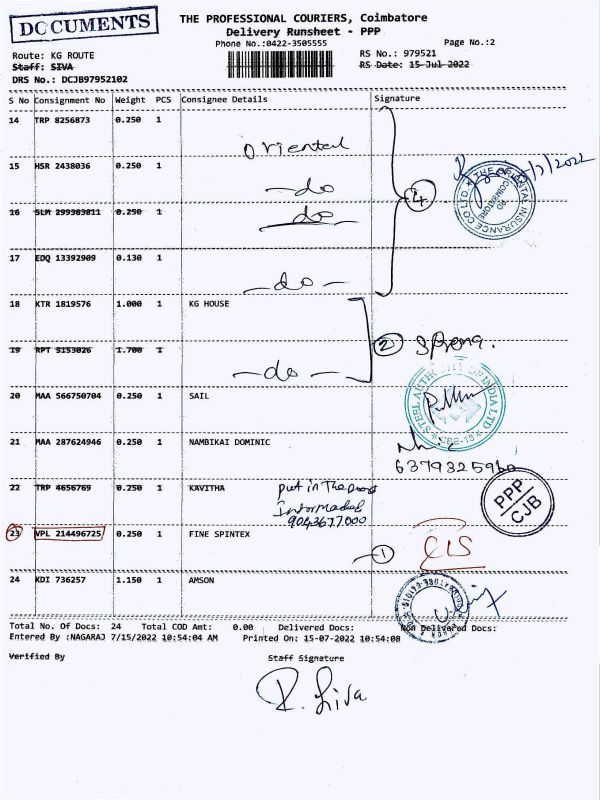 DOCUMENTS
THE PROFESSIONAL COURIERS, Coimbatore
Delivery Runsheet - PPP
Phone No.:0422-3505555 Page No.:2
Route: KG ROUTE RS No.: 979521
Staff: SIVA RS Date: 15-Jul-2022
DRS No.: DCJB97952102
S No Consignment No Weight PCS Consignee Details Signature
14 TRP 8256873 0.250 1
Oriental
15 HSR 2438036 0.250 1
-do
16 SLM 299389811 0.250 1
do
4
17 EDQ 13392909 0.130 1
-do-
18 KTR 1819576 1.000 1 KG HOUSE
19 RPT 5153026 1.700 1
2
-do-
20 MAA 566750704 0.250 1 SAIL
STEEL AUTHORITY OF INDIA LTD
21 MAA 287624946 0.250 1 NAMBIKAI DOMINIC
22 TRP 4656769 0.250 1 KAVITHA
put in The
9043677000
PPP
CJB
23 VPL 214496725 0.250 1 FINE SPINTEX
1
24 KDI 736257 1.150 1 AMSON
Total No. Of Docs: 24 Total COD Amt: 0.00 Delivered Docs: Non Delivered Docs:
Entered By :NAGARAJ 7/15/2022 10:54:04 AM Printed On: 15-07-2022 10:54:08
Verified By Staff Signature
R. Siva